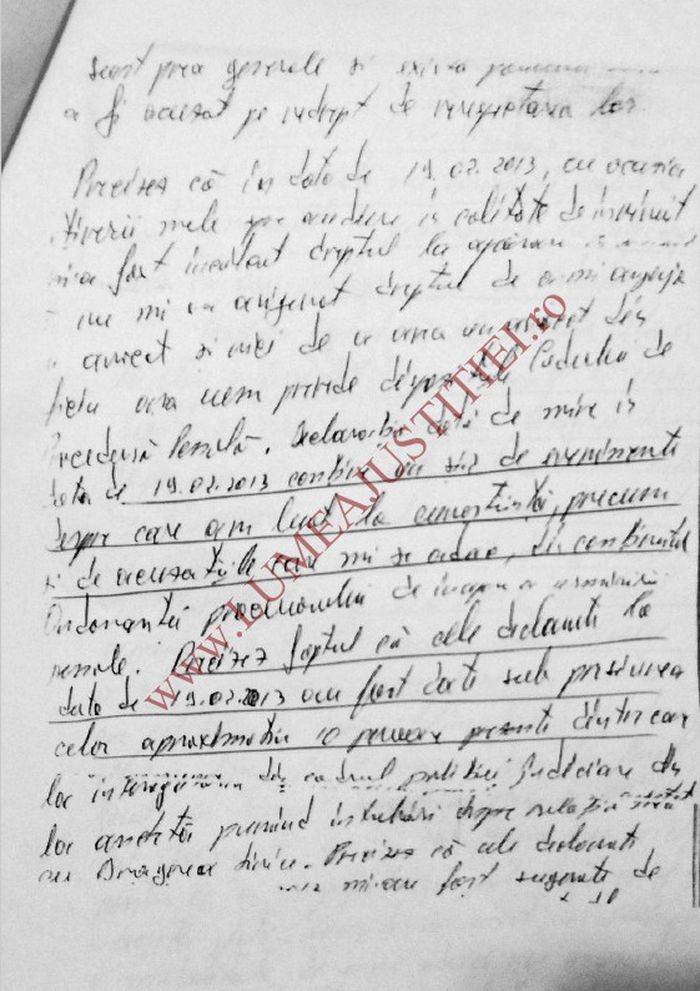 sunt prea generale si exista
a fi acuzat pe nedrept de nerespectarea lor.
Precizez că în data de 19.02.2013, cu ocazia
mele spre audiere în calitate de învinuit
mi-a fost încălcat dreptul la apărare
nu mi s-a asigurat dreptul de a-mi angaja
avocat si nici de a avea un avocat din
prevede Codului de
Procedură Penală. Declarația dată de mine în
data de 19.02.2013 conține un șir de evenimente
despre care am luat la cunoștință, precum
si de acuzațiile care mi se aduc, din conținutul
Ordonanței procurorului de începere a urmăririi
penale. Precizez faptul că cele declarate la
data de 19.02.2013 au fost date sub presiunea
celor aproximativ 10 persoane prezente dintre care
lor din cadrul poliției judiciare din
lor anchetă punând întrebări despre relația mea
cu Dragnea Liviu. Precizez că cele declarate
mi-au fost sugerate de
www.LUMEAJUSTITIEI.ro